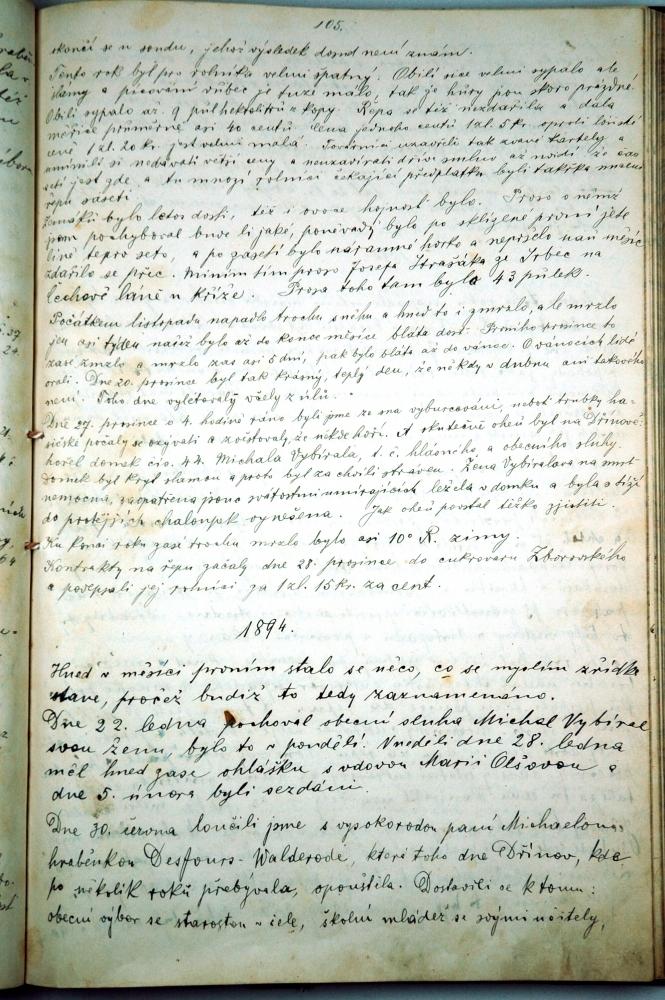 105.
skončí se u soudu, jehož výsledek dosud není znám.
Tento rok byl pro rolníka velmi špatný. Obilí sice velmi sypalo ale
slámy a pícování vůbec je tuze málo, tak je hůry jsou skoro prázdné.
Obilí sypalo až 9 půlhektolitrů z kopy. Řepa se též nezdařila a dala
měřice průměrně asi 40 centů. Cena jednoho centu 1 zl. 5 kr. proti loňské
ceně 1 zl. 20 kr. jest velmi malá. Továrníci uzavřeli tak zvané kartely a
umínili si nedávati větší ceny a neuzavírati dříve smluv, až uvidí že čas
setí jest zde, a tu mnozí rolníci čekající předplatku byli takřka nuceni
řepu zaseti.
Zemáků bylo letos dosti, též i ovoce hojnost bylo. Proso o němž
jsem pochyboval bude-li jaké, poněvadž bylo po sklizené první jete
lině teprv seto, a po zasetí bylo náramné horko a nepršelo naň měsíc
zdařilo se přec. Míním tím proso Josefa Strašáka ze Vrbec na
Čechově laně u kříže. Prosa toho tam bylo 43 půlek.
Počátkem listopadu napadlo trochu sněhu a hned to i zmrzlo, ale mrzlo
jen asi týden načež bylo až do konce měsíce bláta dost. Prvního prosince to
zase zmrzlo a mrzlo zas asi 5 dní, pak bylo bláto až do vánoc. O vánocích lidé
orali. Dne 20. prosince byl tak krásný, teplý den, že někdy v dubnu ani takového
není. Toho dne vyletovaly včely z úlů.
Dne 27. prosince o 4. hodině ráno byli jsme ze sna vyburcováni, neboť trubky ha-
sičské počaly se ozývati a zvěstovaly, že někde hoří. A skutečně oheň byl na Dřínově:
hořel domek čís. 44. Michala Vybírala, t. č. hlásného a obecního sluhy.
Domek byl kryt slamou a proto byl za chvíli stráven. Žena Vybíralova na smrt
nemocná, zaopatřena jsouc svátostmi umírajících ležela v domku a byla s tíží
do protějších chaloupek vynešena. Jak oheň povstal těžko zjistiti.
Ku konci roku zase trochu mrzlo bylo asi 10° R. zimy.
Kontrakty na řepu začaly dne 28. prosince do cukrovaru Zborovského
a podepsali jej rolníci za 1 zl. 15 kr. za cent.
1894.
Hned v měsíci prvním stalo se něco, co se myslím zřídka
stane, pročež budiž to tedy zaznamenáno.
Dne 22. ledna pochoval obecní sluha Michal Vybíral
svou ženu, bylo to v pondělí. V neděli dne 28. ledna
měl hned zase ohlášku s vdovou Marií Olšovou a
dne 5. února byli sezdáni.
Dne 30. června loučili jsme s vysokorodou paní Michaelou,
hraběnkou Desfours-Walderode, která toho dne Dřínov, kde
po několik roků přebývala, opouštěla. Dostavili se k tomu:
obecní výbor se starostou v čele, školní mládež se svými učitely,